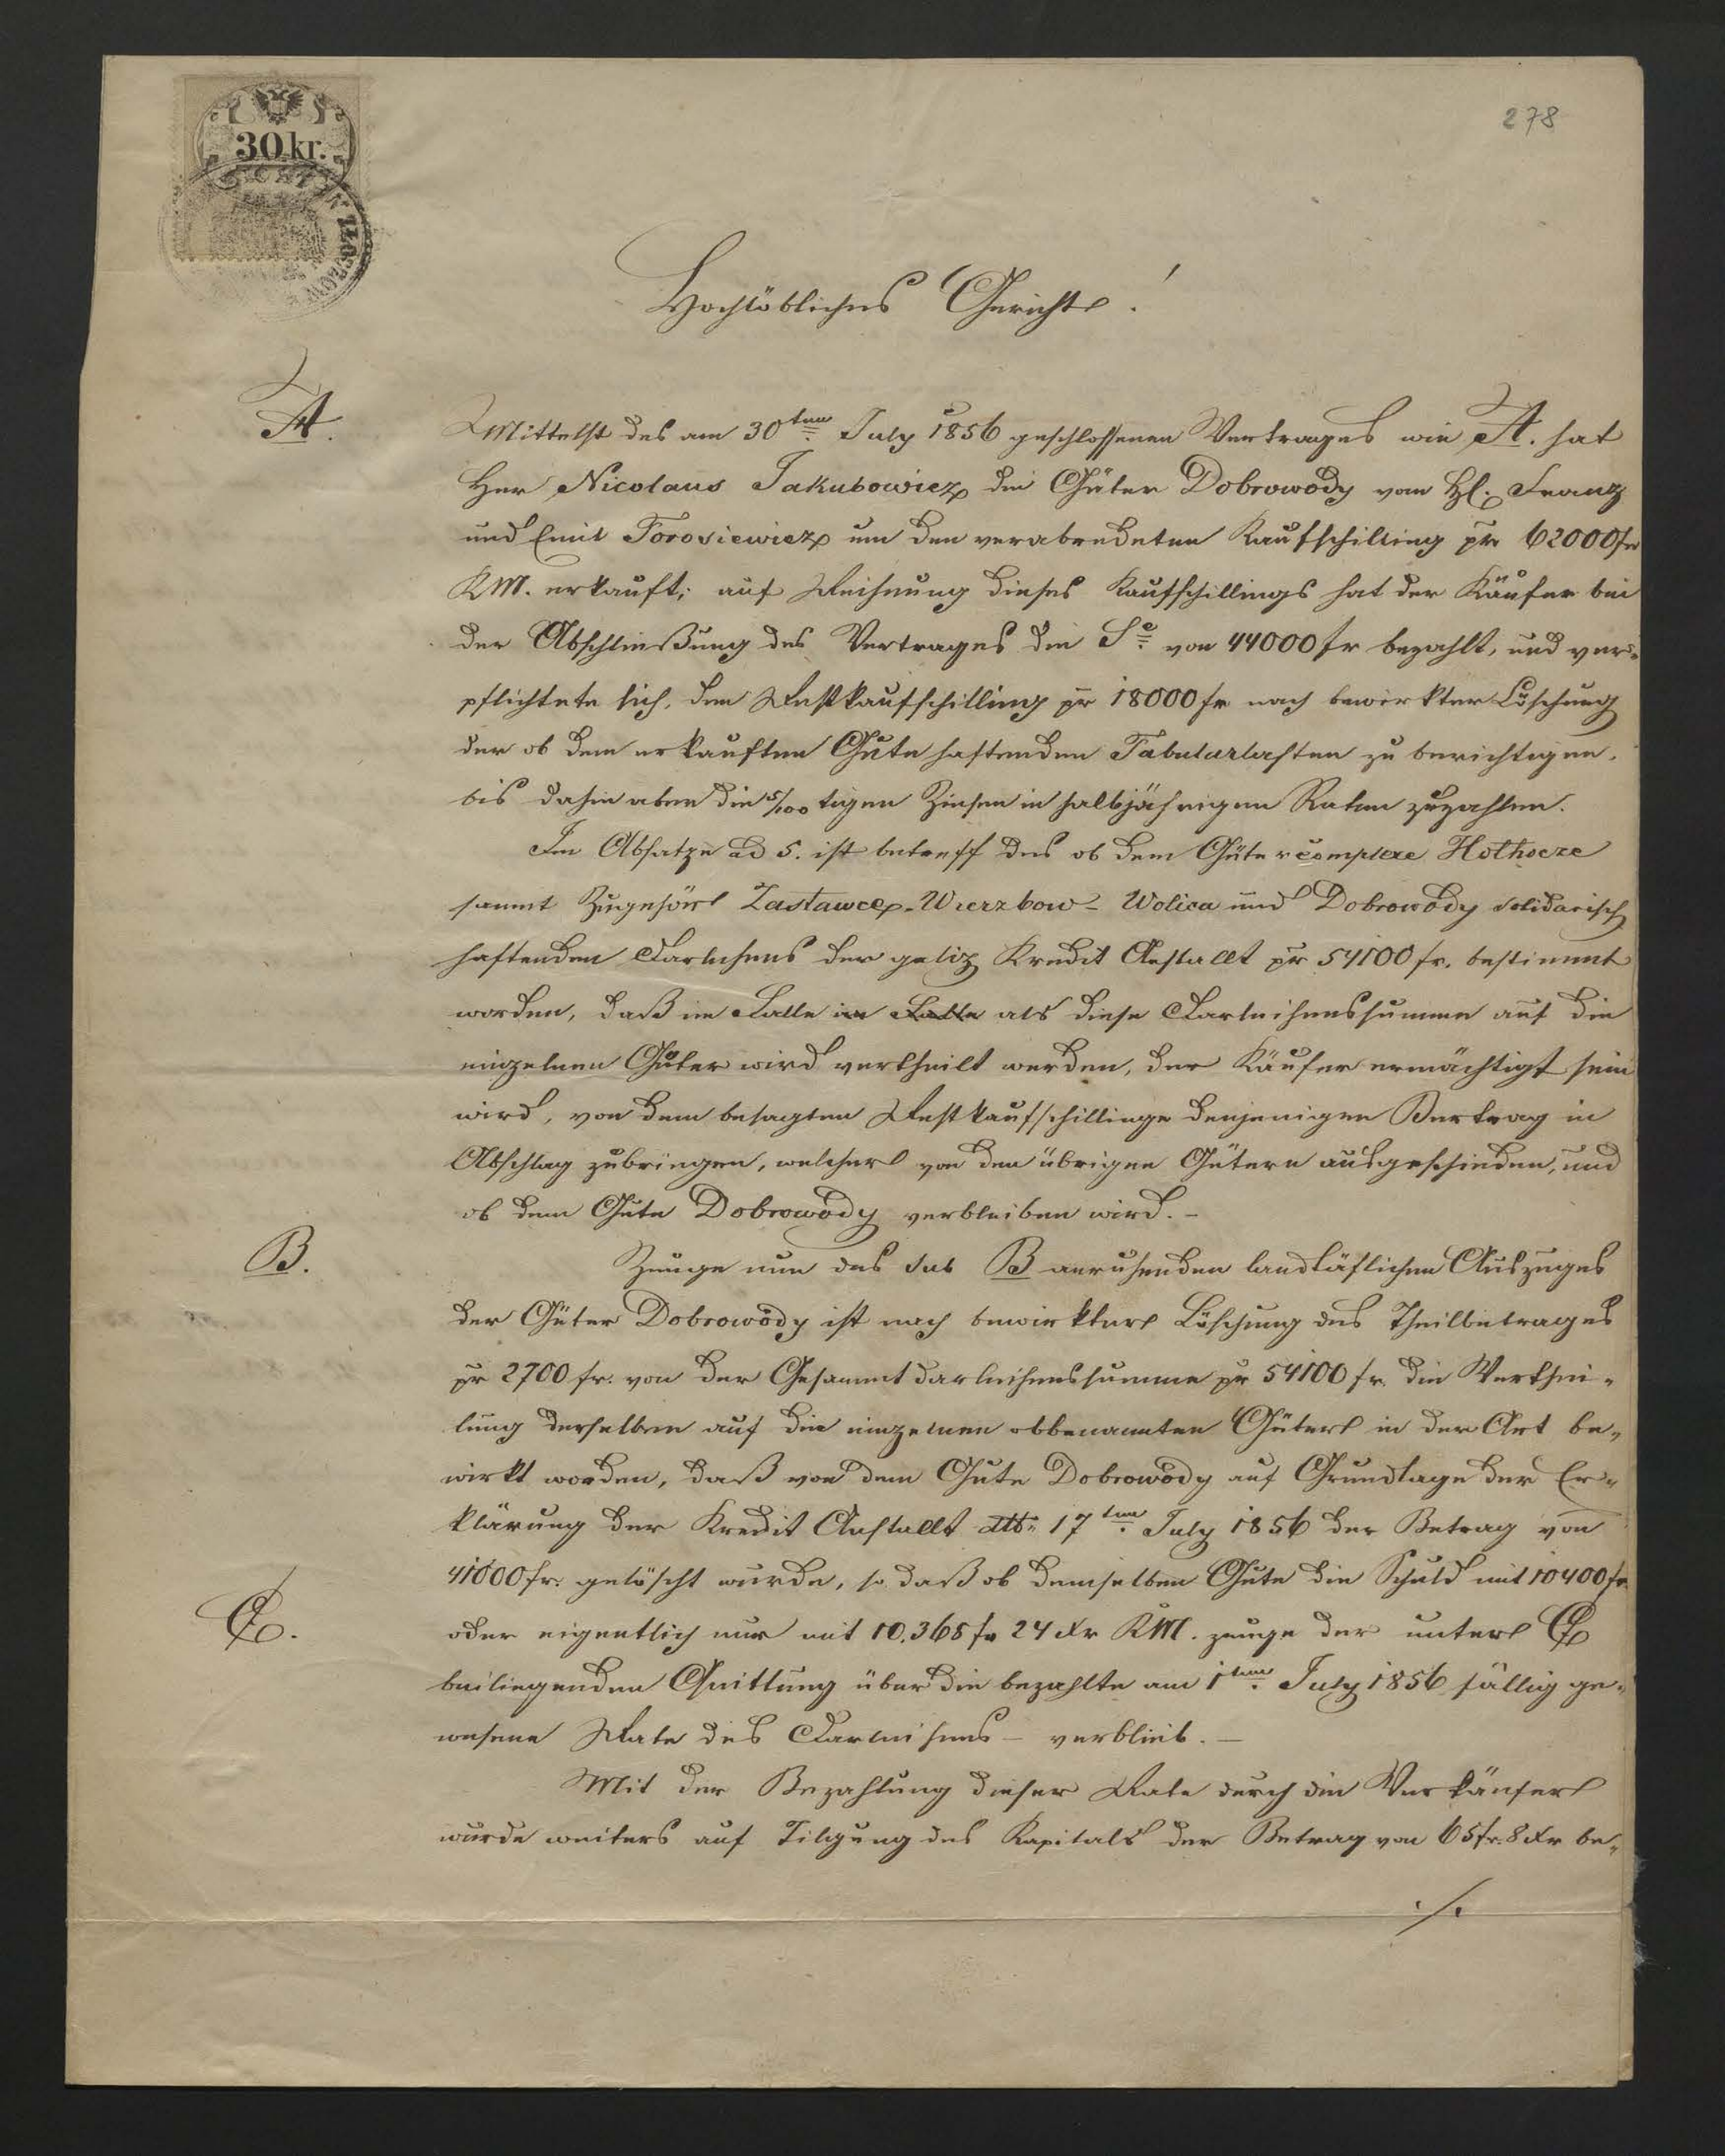 278
30 kr.
ZŁOCZOW
Hochlöbliches Gericht!
A.
Mittelst des am 30ten July 1856 geschlossenen Vertrages wie A. hat
Herr Nicolaus Jakubowicz die Güter Dobrowody von H. Franz
und Emil Torosiewicz um den verabredeten Kaufschilling pr 62000 fr
KM. erkauft; auf Rechnung dieses Kaufschillings hat der Käufer bei
der Abschließung des Vertrages die Se von 44000 fr bezahlt, und ver-
pflichtete sich, den Restkaufschilling pr 18000 fr nach bewirkter Löschung
der ob dem erkauften Gute haftenden Tabularlasten zu berichtigen,
bis dahin aber die 5/100 tigen Zinsen in halbjährigen Raten zuzahlen.
Im Absatze ad 5. ist betreff des ob dem Gütercomplexe Hołhocze
sammt Zugehör Zastawce - Wierzbow - Wolica und Dobrowody solidarisch
haftenden Darlehens der galiz Kredit Anstallt pr 54100 fr. bestimmt
worden, daß im Falle im Falle als diese Darleihenssumme auf die
einzelnen Güter wird vertheilt werden, der Käufer ermächtigt sein
wird, von dem besagten Restkaufschillinge denjenigen Bertrag in
Abschlag zubringen, welcher von den übrigen Gütern ausgeschieden, und
ob dem Gute Dobrowody verbleiben wird. -
B.
Zeuge nun des sub B anruhenden landtäflichen Auszuges
der Güter Dobrowody ist nach bewirkter Löschung des Theilbetrages
pr 2700 fr. von der Gesammtdarleihenssumme pr 54100 fr. die Verthei-
lung derselben auf die einzelnen obbenannten Güter in der Art be-
wirkt worden, daß von dem Gute Dobrowody auf Grundlage der Er-
klärung der Kredit Anstallt dtto 17ten July 1856 der Betrag von
41000 fr. gelöscht wurde, so daß ob demselben Gute die Schuld mit 10400 fr
C.
oder eigentlich nur mit 10,368 fr 24 Xr KM. zeuge der unter C
beiliegenden Quittung über die bezahlte am 1ten July 1856 fällig ge-
wesene Rate des Darleihens - verblieb. -
Mit der Bezahlung dieser Rate durch die Verkäufer
wurde weiters auf Tilgung des Kapitals der Betrag von 65 fr. 8 Xr be-
./.